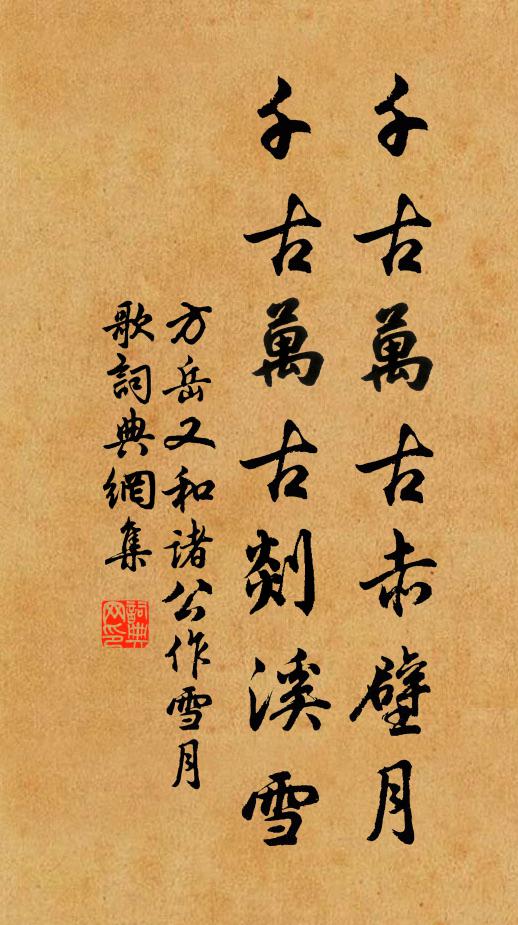 千古萬古赤壁月
千古萬古剡溪雪
方岳又和諸公作雪月
歌詞典網集
詞典網印